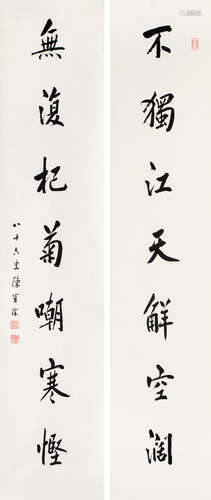 不獨江天解空闊
無復杞菊嘲寒慳
八十六叟陳寶琛